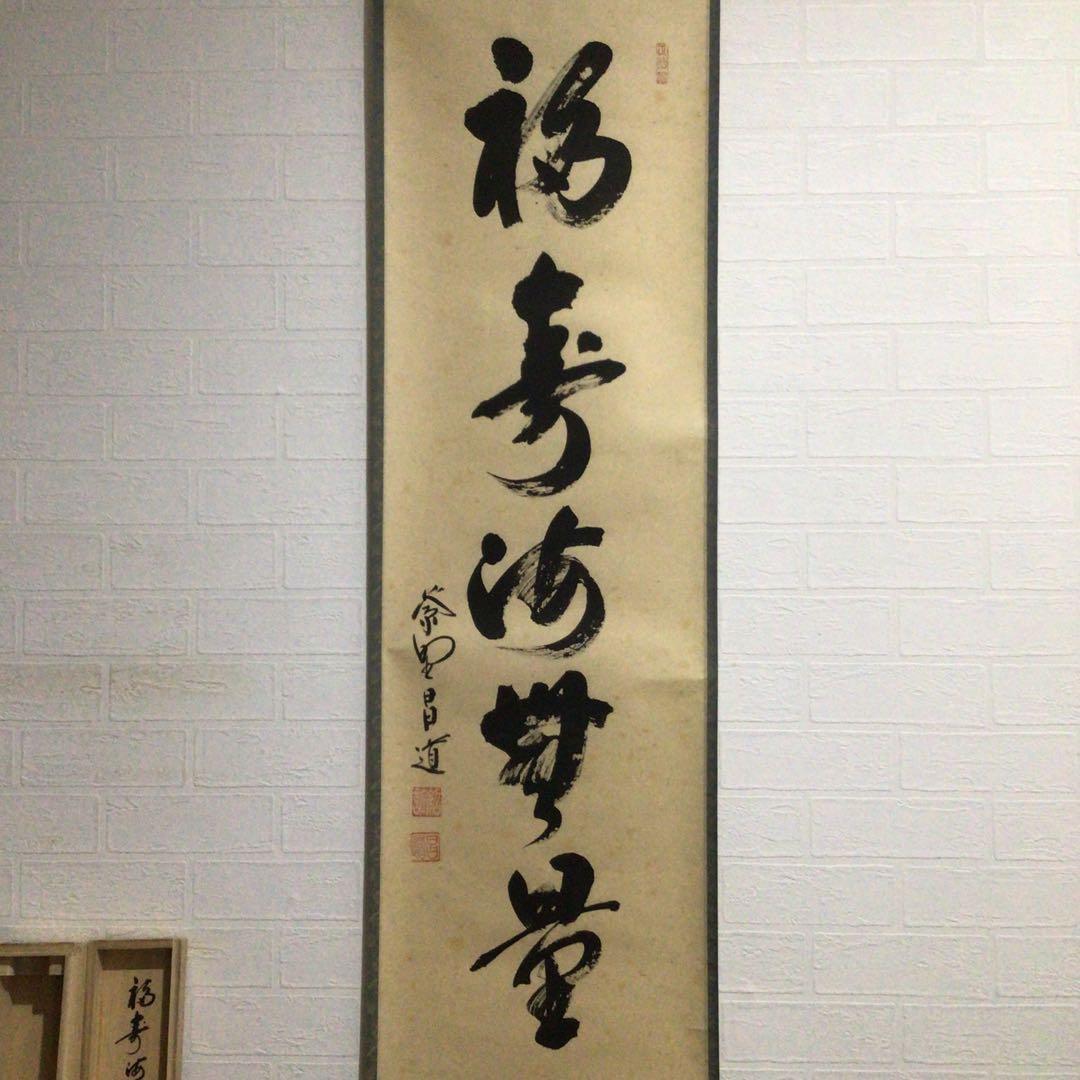 福寿海無量
紫野昌道
福寿海